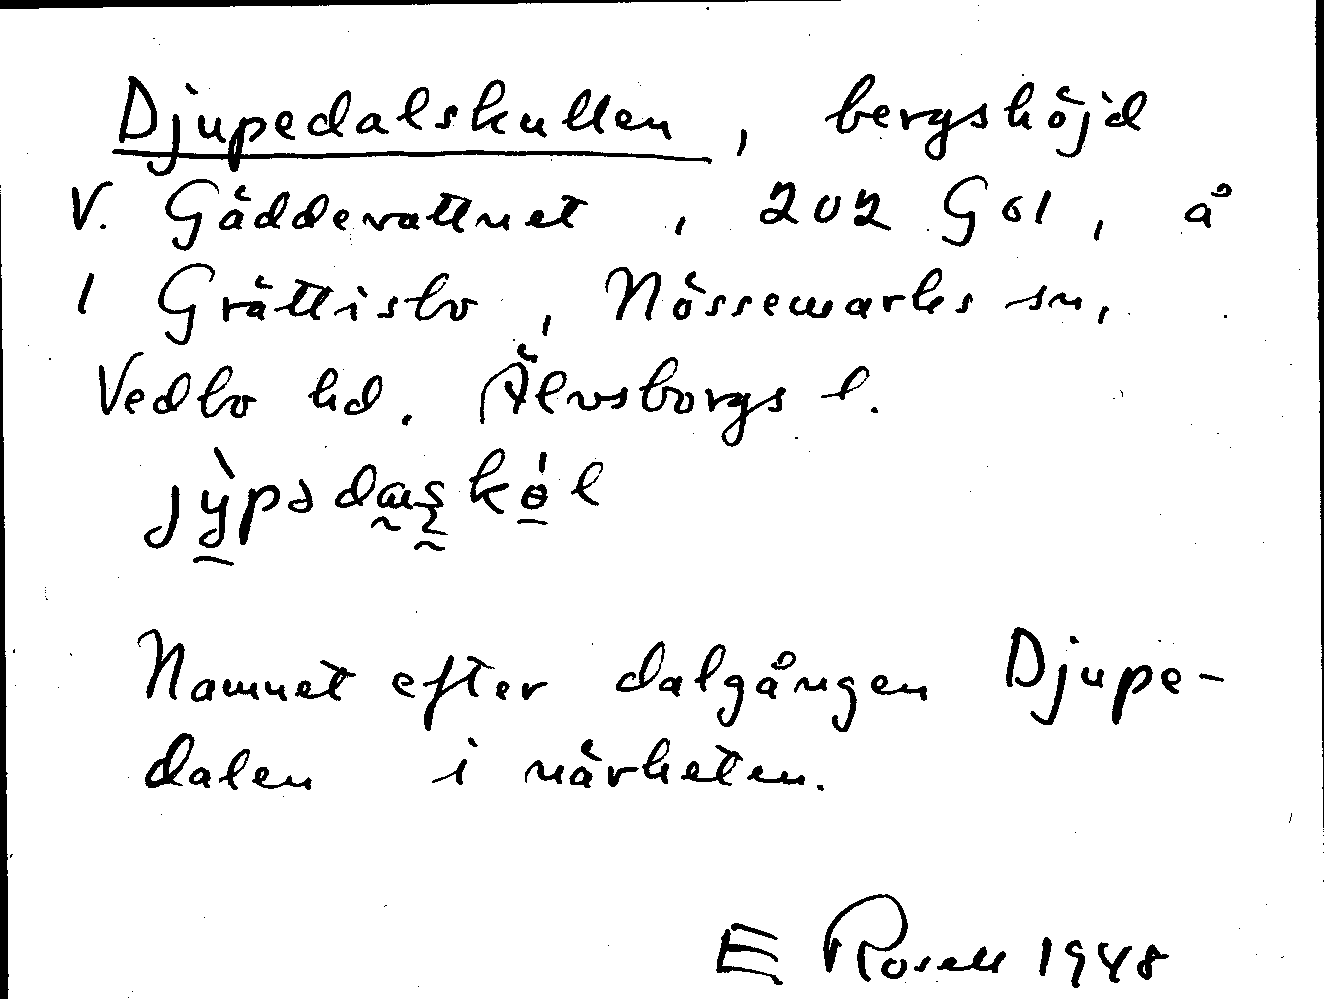 Djupedalskullen, bergshöjd
V. Gäddevattnet, 202 Gol, å
1 Grättisbo, Nössemarks sn,
Vedbo hd. Älvsborgs l.
Namnet efter dalgången Djupe-
dalen i närheten.
E Rosell 1948